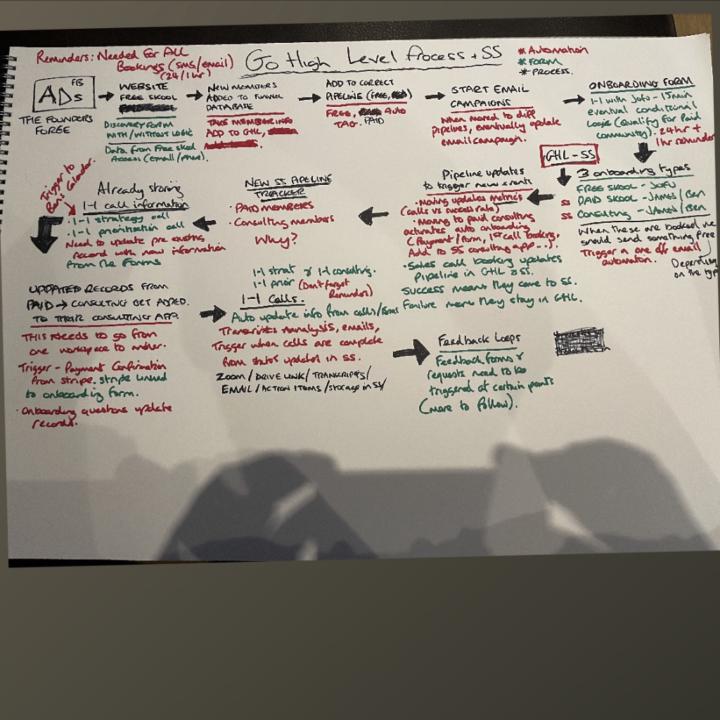 Reminders: Needed for All
Bookings (sms/email)
(24/1hr)
Go High Level Process + SS
* Automation
* FORM
* PROCESS.
FB
ADs
THE FOUNDERS
FORGE
WEBSITE
FREE SKOOL
DISCOVERY FORM
WITH/WITHOUT LOGIC
Data from Free skool
Access (email/phone).
NEW MEMBERS
ADDED TO FUNNEL
DATABASE
TAKE MEMBER INFO
ADD TO GHL,
ADD TO CORRECT
PIPELINE (FREE,
FREE, AUTO
TAG. PAID
START EMAIL
CAMPAIGNS
When moved to diff
pipelines, eventually update
email campaign.
ONBOARDING FORM
1-1 with John - 15min
eventual conditional
Logic (Qualify for Paid
community). 24hr +
1hr reminder
GHL - SS
3 onboarding types
FREE SKOOL - JOHN
SS PAID SKOOL - JAMES/BEN
SS CONSULTING - JAMES/BEN
When these are booked we
should send something free
Trigger a one off email
automation.
Depending
on the type
Pipeline updates
to trigger new events
• Moving updates metrics
(calls vs success rate)
• Moving to paid consulting
activates auto onboarding
(Payment/form, 1st call booking,
Add to SS consulting app...).
• Sales call booking updates
Pipeline in GHL & SS.
Success means they come to SS.
Failure means they stay in GHL.
NEW SS PIPELINE
TRACKER
• PAID MEMBERS
• Consulting members
Why?
Trigger to
Ben's Calendar.
Already storing
1-1 call information
• 1-1 strategy call
• 1-1 prioritisation call
Need to update pre existing
record with new information
from the forms
UPDATED RECORDS FROM
PAID → CONSULTING GET ADDED
TO THEIR CONSULTING APP.
THIS Needs to go from
one workspace to another.
Trigger - Payment Confirmation
from stripe. stripe linked
to onboarding form.
• Onboarding questions update
records.
1-1 strat & 1-1 consulting.
1-1 prior (Don't forget
Reminders)
1-1 Calls.
Auto update info from calls/forms
Transcripts Analysis, emails,
Trigger when calls are complete
from status update in SS.
ZOOM/DRIVE LINK/TRANSCRIPTS/
EMAIL/ACTION ITEMS/storage in SS/
Feedback Loops
Feedback forms &
requests need to be
triggered at certain points
(more to follow).